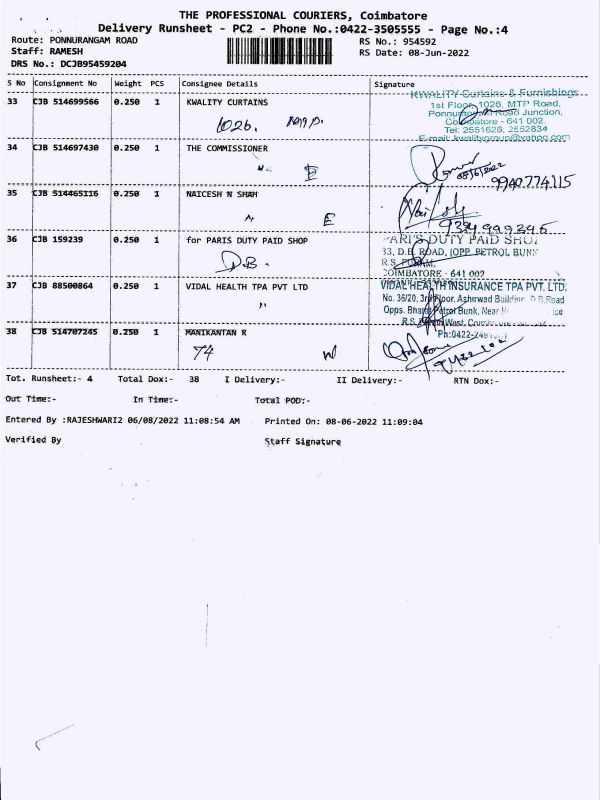 THE PROFESSIONAL COURIERS, Coimbatore
Delivery Runsheet - PC2 - Phone No.:0422-3505555 - Page No.:4
Route: PONNURANGAM ROAD RS No.: 954592
Staff: RAMESH RS Date: 08-Jun-2022
DRS No.: DCJB95459204
S No Consignment No Weight PCS Consignee Details Signature
33 CJB 514699566 0.250 1 KWALITY CURTAINS
1026. M T P.
KWALITY Curtains & Furnishings
1st Floor, 1026, MTP Road,
Ponnurangam Road Junction,
Coimbatore - 641 002.
Tel: 2551626, 2552834
E-mail: kwalitygroup@yahoo.com
34 CJB 514697430 0.250 1 THE COMMISSIONER
E
08/6/2022
9940774115
35 CJB 514465116 0.250 1 NAICESH N SHAH
E
36 CJB 159239 0.250 1 for PARIS DUTY PAID SHOP
D.B.
PARI'S DUTY PAID SHOP
33, D.B. ROAD, (OPP. PETROL BUNK
R.S. PURAM,
COIMBATORE - 641 002
37 CJB 88500864 0.250 1 VIDAL HEALTH TPA PVT LTD
"
VIDAL HEALTH INSURANCE TPA PVT. LTD.
No. 36/20, 3rd Floor, Asherwad Building, D.B.Road
Opps. Bharat Petrol Bunk, Near
R.S. West,
Ph:0422-249
38 CJB 514707245 0.250 1 MANIKANTAN R
74 W
Tot. Runsheet:- 4 Total Dox:- 38 I Delivery:- II Delivery:- RTN Dox:-
Out Time:- In Time:- Total POD:-
Entered By :RAJESHWARI2 06/08/2022 11:08:54 AM Printed On: 08-06-2022 11:09:04
Verified By Staff Signature